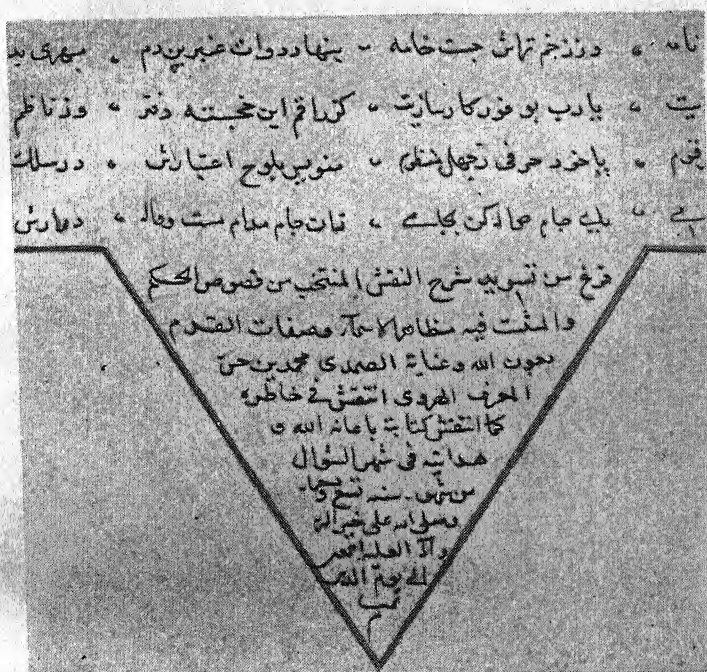 نامه ، وز زخم تراش جست خامه ، بنهاد دوات عنبرین دم ، بمهری
یت ، یارب بو فور کارسازیت ، کز راقم این خجسته دفتر ، وز ناظم
رقوم ، یاخود حرفی ز جهل منظوم ، منویس بلوح اعتبارش ، در سلک
جام ، کن بجامی ، جام مدام مست
فرغ من تسوید شرح النقش المنتخب من فصوص الحکم
والمثبت فیه مظاهر الاسماء وصفات القدم
بعون الله وعنایة الصمدی محمد بن حسن
المعرف الهروی انتقش فی خاطره
کما انتقش کتابة باعانة الله و
هدایته فی شهر الشوال
من شهور سنه تسع
وصلی الله علی خیر
وآله
الی یوم الدین
تمت
م